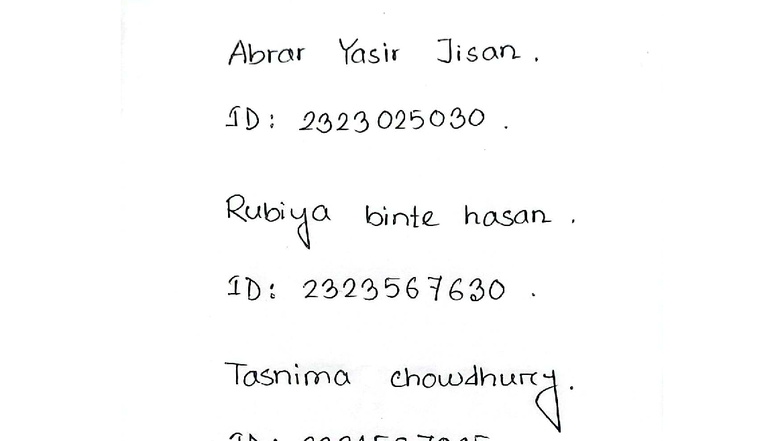 Abrar Yasir Jisan.
ID: 2323025030.
Rubiya binte hasan.
ID: 2323567630.
Tasnima chowdhury.
ID: